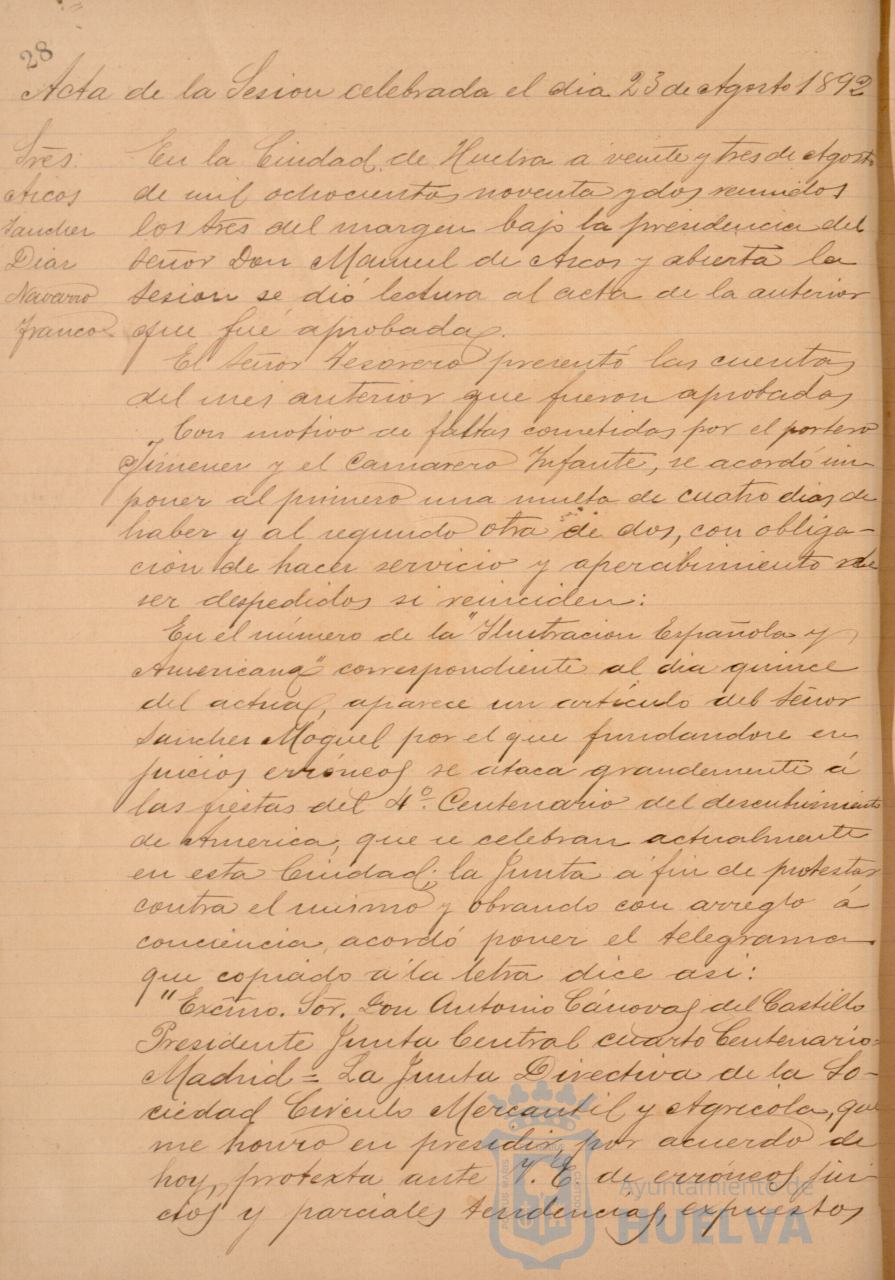 28
Acta de la Sesion celebrada el dia 23 de Agosto 1892
Sres.
Arcos
Sanchez
Diaz
Navarro
Franco
En la Ciudad de Huelva a veinte y tres de Agosto
de mil ochocientos noventa y dos reunidos
los sres del margen bajo la presidencia del
señor Don Manuel de Arcos y abierta la
sesion se dió lectura al acta de la anterior
que fué aprobada.
El señor Tesorero presentó las cuentas
del mes anterior que fueron aprobadas
Con motivo de faltas cometidas por el portero
Jimenez y el Camarero Infante, se acordó im
poner al primero una multa de cuatro dias de
haber y al segundo otra de dos, con obliga-
ción de hacer servicio y apercibimiento de
ser despedidos si reinciden:
En el número de la "Ilustracion Española y
Americana" correspondiente al dia quince
del actual, aparece un artículo del señor
Sanchez Moguel por el que fundandose en
juicios erróneos se ataca grandemente á
las fiestas del 4º Centenario del descubrimiento
de America, que se celebran actualmente
en esta Ciudad; la Junta á fin de protestar
contra el mismo y obrando con arreglo á
conciencia, acordó poner el telegrama
que copiado á la letra dice asi:
"Excmo. Sor. Don Antonio Cánovas del Castillo
Presidente Junta Central cuarto Centenario=
Madrid = La Junta Directiva de la So-
ciedad Circulo Mercantil y Agricola, que
me honro en presidir, por acuerdo de
hoy, protexta ante V. E. de erróneos jui
cios y parciales tendencias, expuestos
Ayuntamiento de
HUELVA